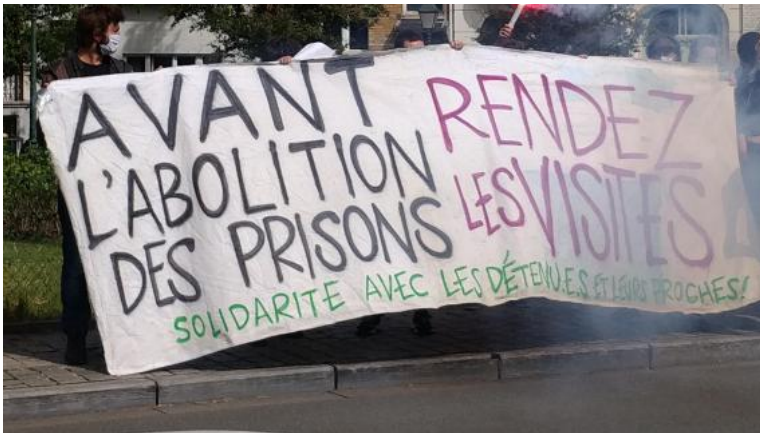 AVANT
L'ABOLITION
DES PRISONS
RENDEZ
LES VISITES
SOLIDARITE AVEC LES DÉTENU.E.S ET LEURS PROCHES!